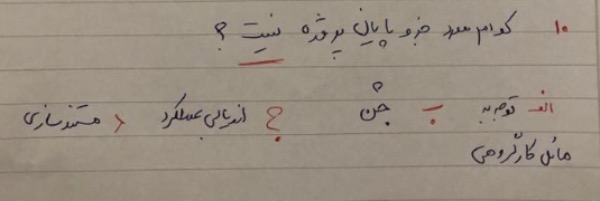 ۱۰ کدام مورد جزو پایان پروژه نیست ؟
الف توجه به ب جشن ج ارزیابی عملکرد د مستندسازی
مسائل کار گروهی